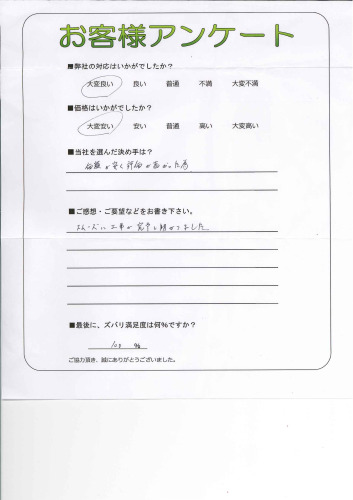 お客様アンケート
■弊社の対応はいかがでしたか？
大変良い 良い 普通 不満 大変不満
■価格はいかがでしたか？
大変安い 安い 普通 高い 大変高い
■当社を選んだ決め手は？
価格が安く評価が高かった為
■ご感想・ご要望などをお書き下さい。
スムーズに工事が完了し助かりました
■最後に、ズバリ満足度は何%ですか？
100 %
ご協力頂き、誠にありがとうございました。